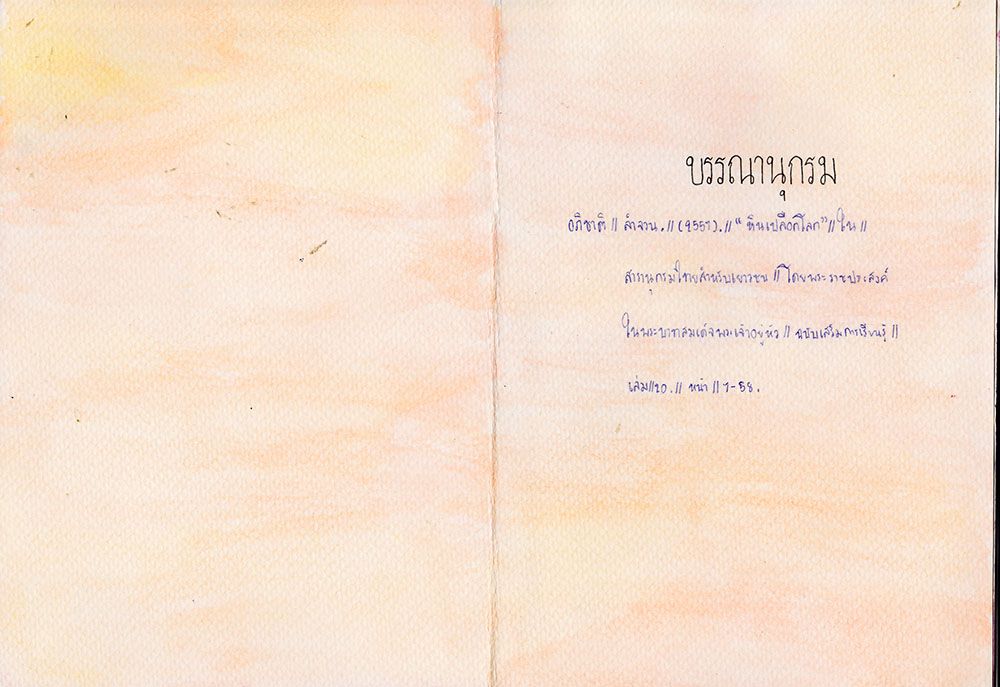 บรรณานุกรม
อภิชาติ // ลำจวน. // (2551). // “ หินเปลือกโลก” // ใน //
สารานุกรมไทยสำหรับเยาวชน // โดยพระราชประสงค์
ในพระบาทสมเด็จพระเจ้าอยู่หัว // ฉบับเสริมการเรียนรู้ //
เล่ม//20. // หน้า // 7-58.